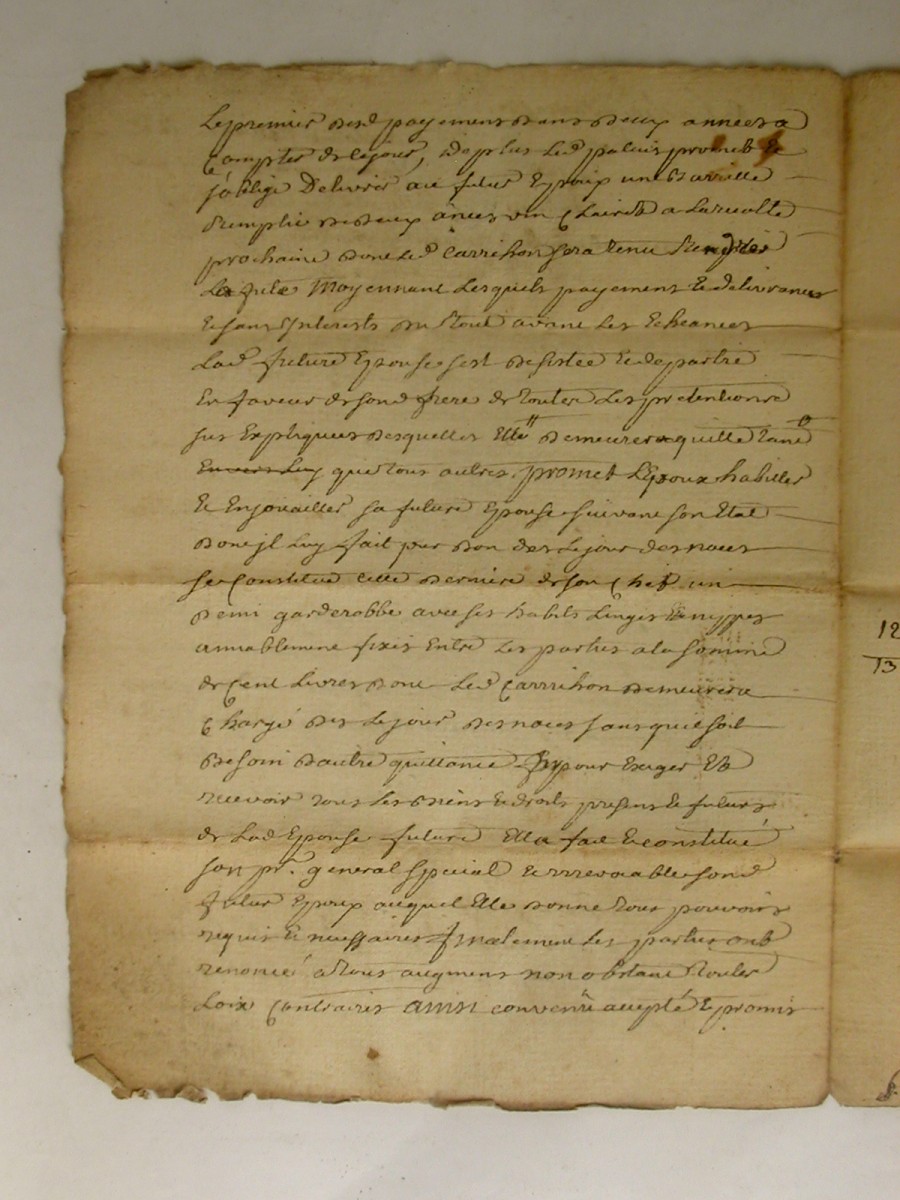 Le premier desd payemens dans deux années a
Compter de ce jour, de plus Led palais promet et
s'oblige Delivrer au futur Epoux une Barrille
Remplie de deux anées vin Clairet a La recolte
prochaine dont Led Carrihon sera tenu
Moyennant Lesquels payemens Et delivrances
Et sans Interests du tout avant Les Echeances
Lad future Epouse sest desistée Et departie
En faveur de sond frere de toutes Les pretentions
sus Expliquées desquelles Elle demeurera quitte tant
Envers Luy que tous autres, promet L'Epoux habiller
Et Enjouailler sa future Epouse suivant son Etat
dont jl Luy fait pur don des Le jour des noces
se Constitue cette derniere de son Chef un
demi garderobbe avec ses habits Linges Et nippes
amiablement fixés Entre Les parties a la somme
de Cent Livres dont Led Carrihon demeurera
Chargé des Le jour des noces sans quil soit
Besoin d'autre quittance Et pour Exiger Et
recevoir tous Les Biens Et droits presens Et futurs
de Lad Epouse future Elle a fait Et constitué
son pr. general special Et irrevocable sond
futur Epoux auquel Elle donne tous pouvoirs
requis Et necessaires finalement Les parties ont
renoncé a tous augmens nonobstant toutes
Loix Contraires ainsi convenu accepté Et promis
12
13